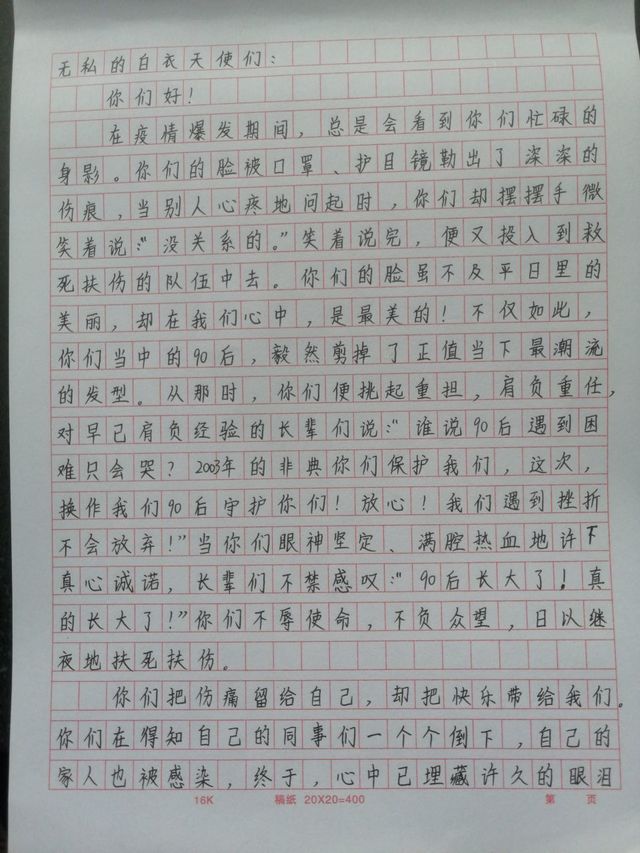 无私的白衣天使们：
你们好！
在疫情爆发期间，总是会看到你们忙碌的
身影。你们的脸被口罩、护目镜勒出了深深的
伤痕，当别人心疼地问起时，你们却摆摆手微
笑着说：“没关系的。”笑着说完，便又投入到救
死扶伤的队伍中去。你们的脸虽不及平日里的
美丽，却在我们心中，是最美的！不仅如此，
你们当中的90后，毅然剪掉了正值当下最潮流
的发型。从那时，你们便挑起重担，肩负重任，
对早已肩负经验的长辈们说：“谁说90后遇到困
难只会哭？2003年的非典你们保护我们，这次，
换作我们90后守护你们！放心！我们遇到挫折
不会放弃！”当你们眼神坚定、满腔热血地许下
真心诚诺，长辈们不禁感叹：“90后长大了！真
的长大了！”你们不辱使命，不负众望，日以继
夜地扶死扶伤。
你们把伤痛留给自己，却把快乐带给我们。
你们在得知自己的同事们一个个倒下，自己的
家人也被感染，终于，心中已埋藏许久的眼泪
16K 稿纸 20X20=400 第 页